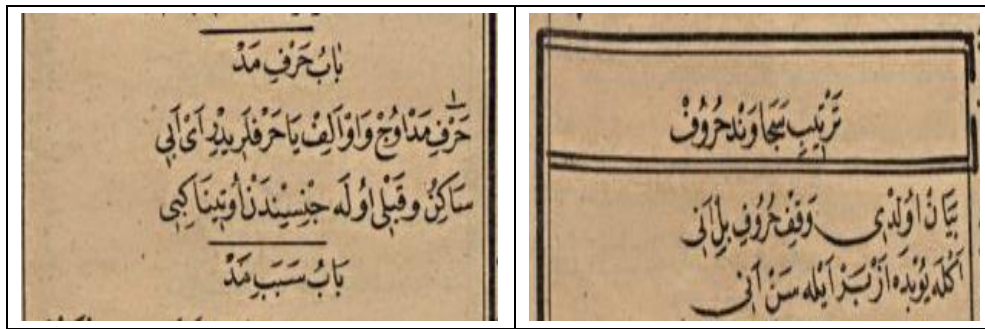 بَابُ حَرْفِ مَدّ
حَرْفِ مَدْ اُوچْ وَاوْ اَلِفْ يَا حَرْفلَرِيدِرْ اَىْ اَبِى
سَاكِنُ وقَبْلِى اُولَه جِنْسِيْنْدَنْ اُوتِينَا كِبِى
بَابُ سَبَبِ مَدّ
تَرْتِيبِ سَجَاوَنْدِ حُرُوفْ
بَيَانْ اُولْدِى وَقفْ حُرُوفِ بِلْ اَنِى
اَكْلَه يُوبْدَه اَزْبَرْ اَيْلَه سَنْ اَنِى